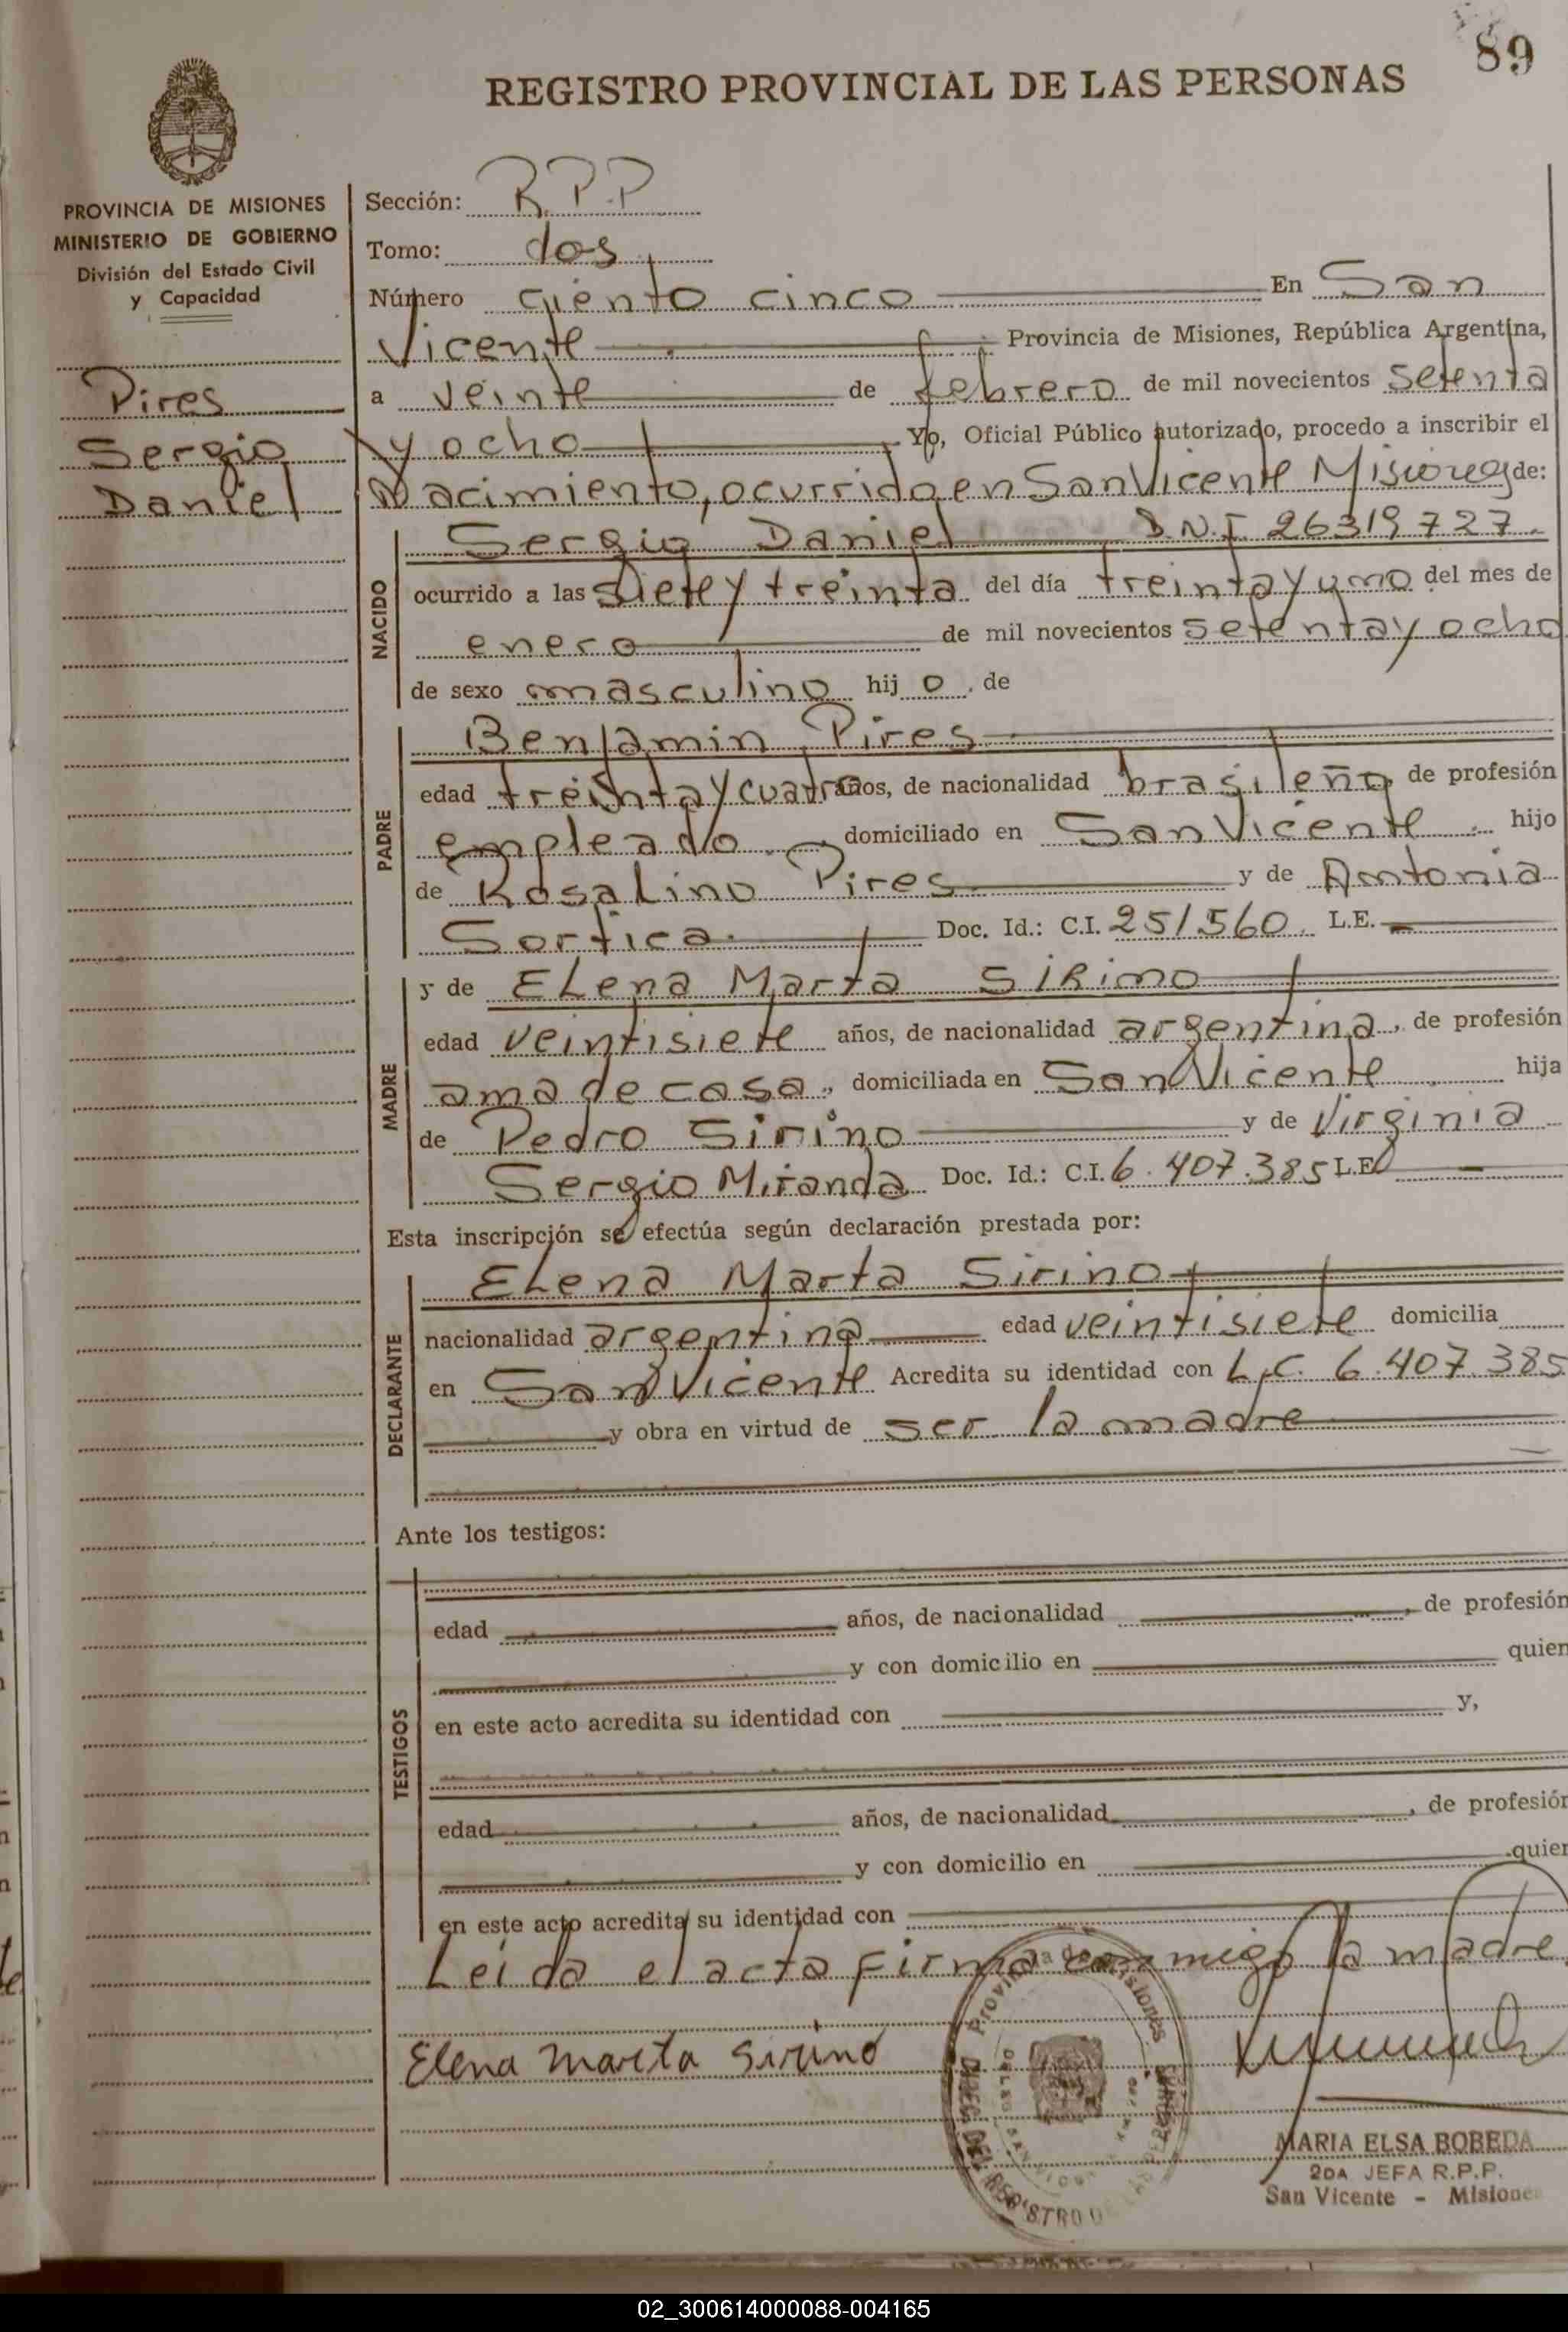 89
REGISTRO PROVINCIAL DE LAS PERSONAS
PROVINCIA DE MISIONES
MINISTERIO DE GOBIERNO
División del Estado Civil
y Capacidad
Pires
Sergio
Daniel
Sección: R.P.P
Tomo: dos
Número ciento cinco En San
Vicente Provincia de Misiones, República Argentina,
a veinte de febrero de mil novecientos setenta
y ocho Yo, Oficial Público autorizado, procedo a inscribir el
Nacimiento, ocurrido en San Vicente Misiones de:
NACIDO
Sergio Daniel D.N.I 26319727.
ocurrido a las siete y treinta del día treinta y uno del mes de
enero de mil novecientos setenta y ocho
de sexo masculino hij o de
PADRE
Benjamin Pires
edad treinta y cuatro años, de nacionalidad brasileño de profesión
empleado domiciliado en San Vicente hijo
de Rosalino Pires y de Antonia
Sortica. Doc. Id.: C.I. 251560 L.E.
MADRE
y de Elena Marta Sirino
edad veintisiete años, de nacionalidad argentina, de profesión
ama de casa, domiciliada en San Vicente hija
de Pedro Sirino y de Virginia
Sergio Miranda Doc. Id.: C.I. 6.407.385 L.E
Esta inscripción se efectúa según declaración prestada por:
DECLARANTE
Elena Marta Sirino
nacionalidad argentina edad veintisiete domicilia
en San Vicente Acredita su identidad con L.C. 6.407.385
y obra en virtud de ser la madre
Ante los testigos:
TESTIGOS
edad años, de nacionalidad , de profesión
y con domicilio en quien
en este acto acredita su identidad con y,
edad años, de nacionalidad , de profesión
y con domicilio en quien
en este acto acredita su identidad con
Leída el acta firma conmigo la madre
Elena Marta Sirino
Provincia de Misiones
DIREC. DEL REGISTRO DE LAS PERSONAS
MARIA ELSA BOBEDA
2DA JEFA R.P.P.
San Vicente - Misiones
02_300614000088-004165